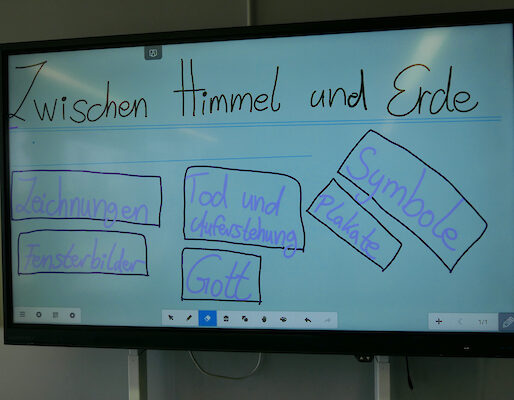 Zwischen Himmel und Erde
Zeichnungen
Fensterbilder
Tod und
Auferstehung
Gott
Symbole
Plakate
1/1